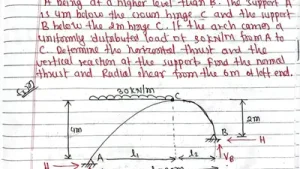 A being at a higher level than B. The support A
is 4m below the crown hinge C and the support
B below the 2m hinge C. If the arch carries a
uniformly distributed load of 30kN/m from A to
C. Determine the horizontal thrust and the
vertical reaction at the support. find the normal
thrust and Radial shear from the 6m of left end.
30kN/m
C
4m
2m
B
H
A
l₁
l₂
V_B
H